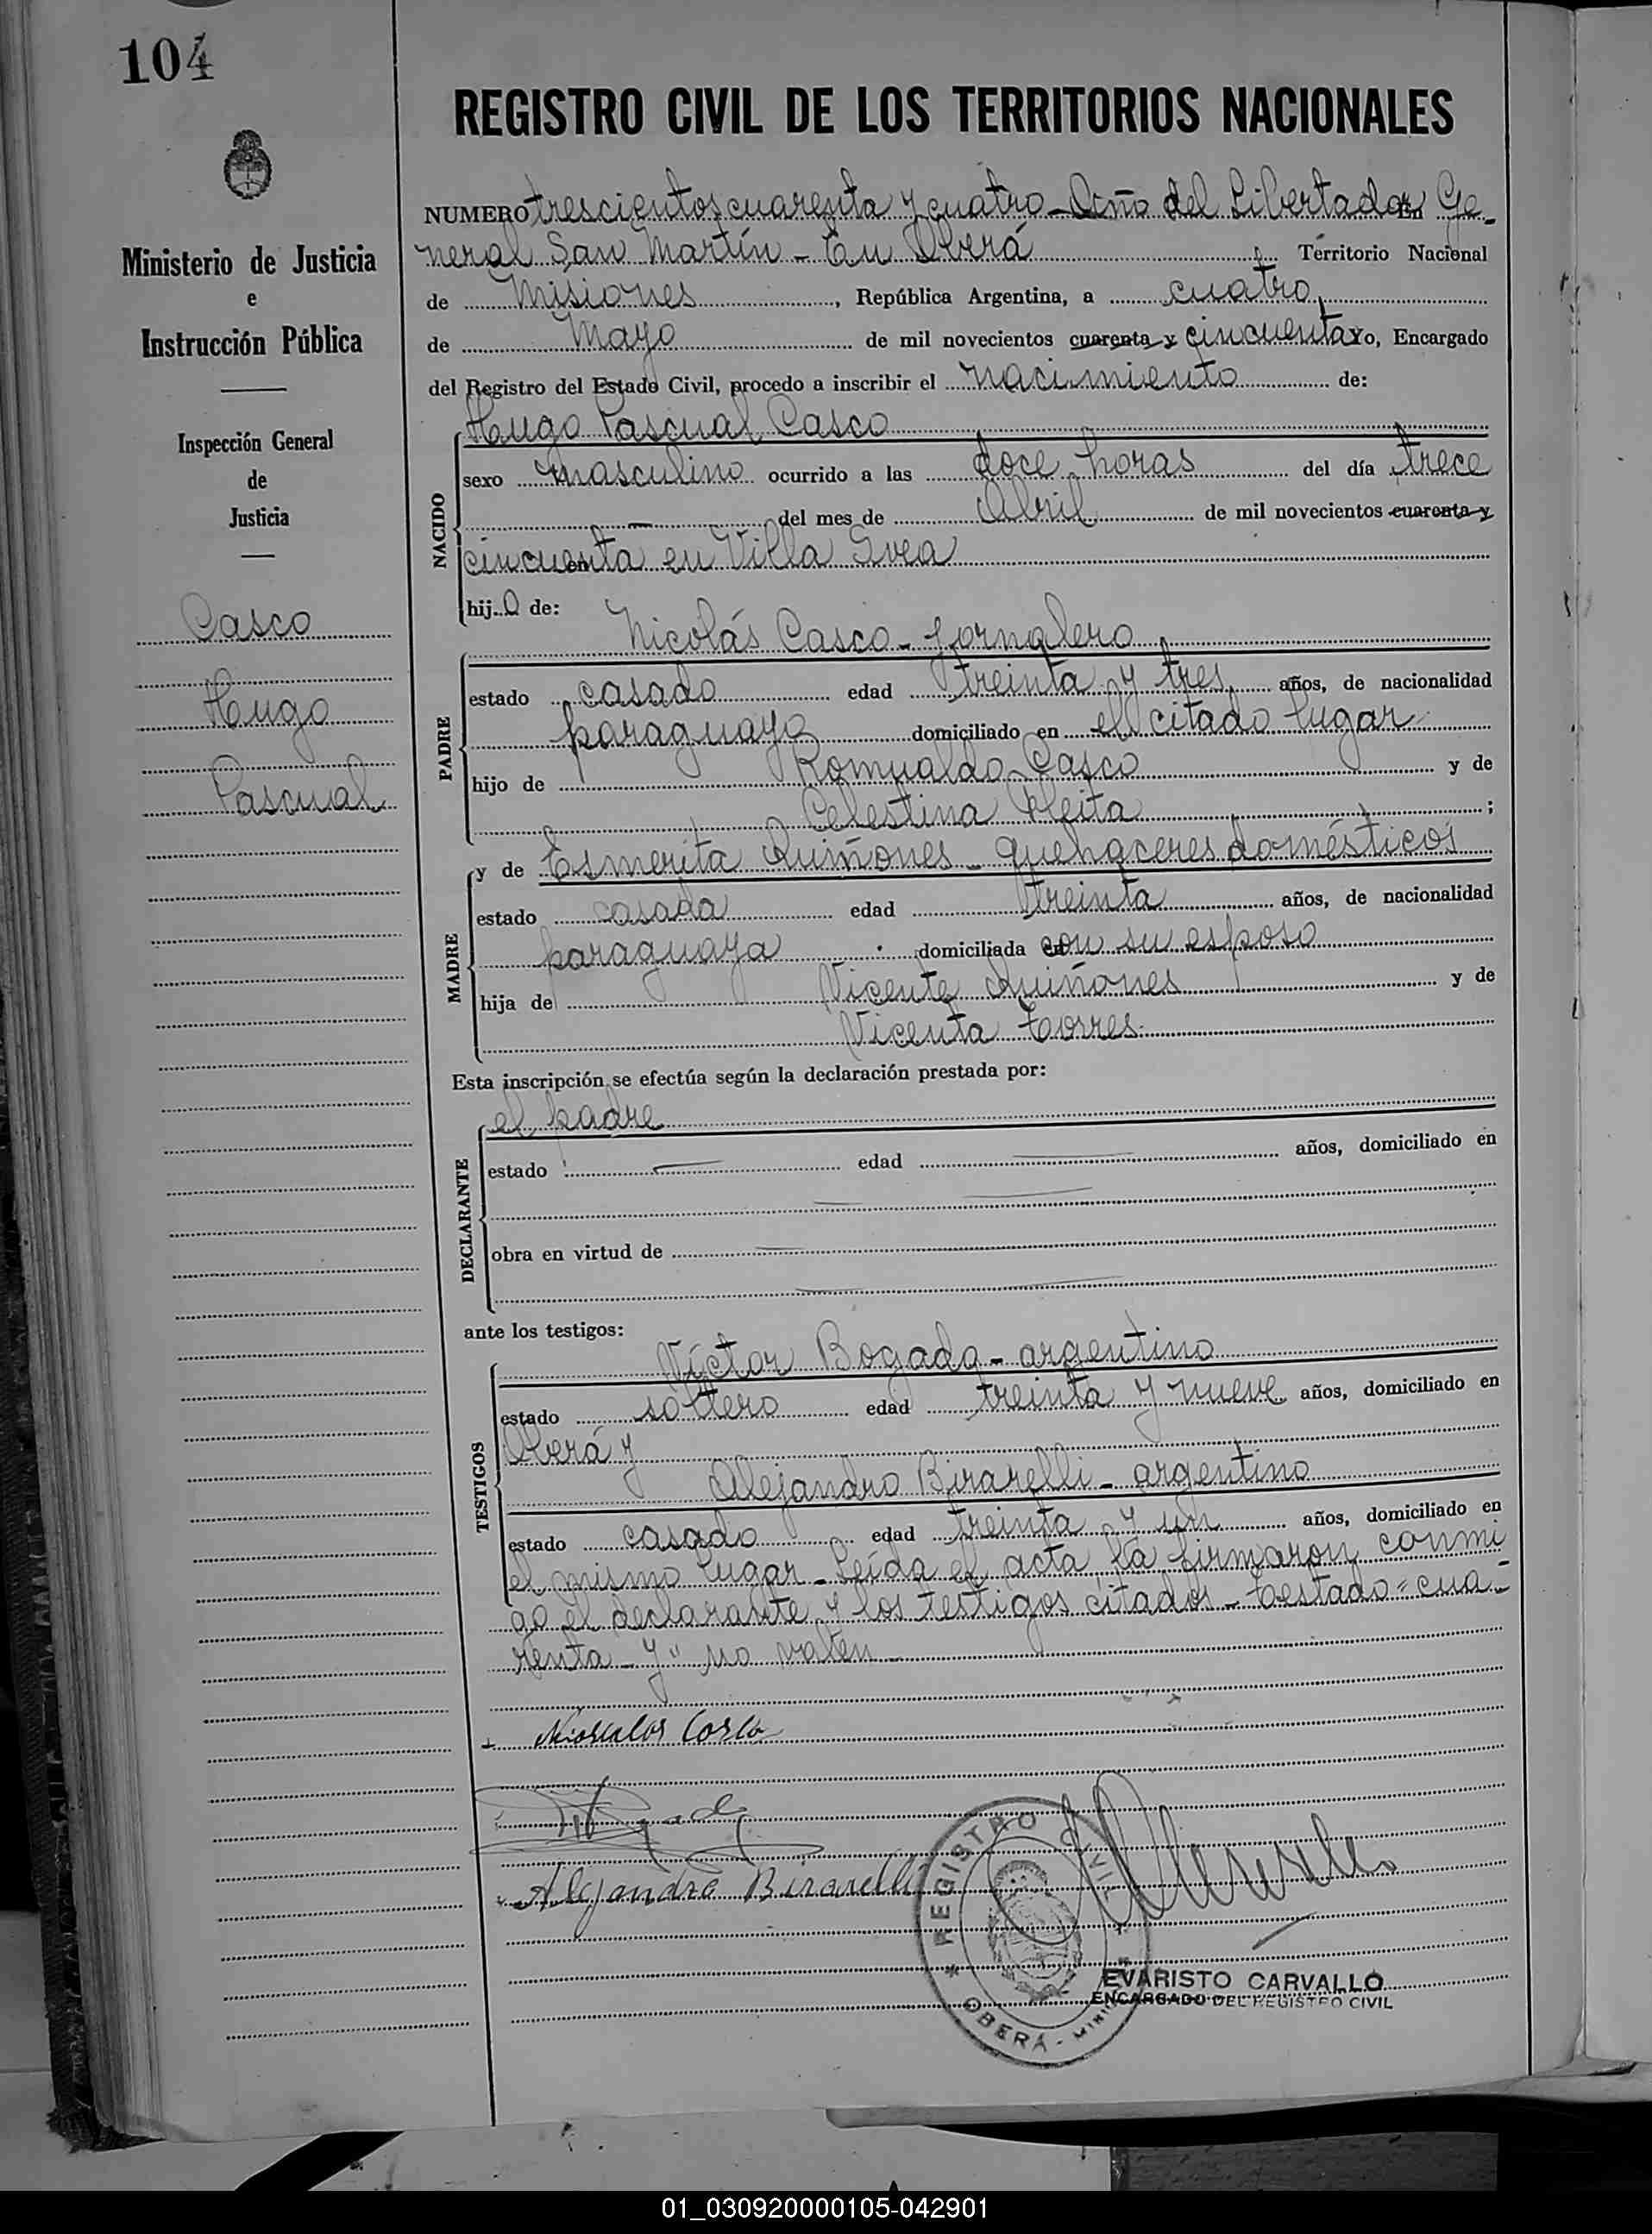 104
REGISTRO CIVIL DE LOS TERRITORIOS NACIONALES
Ministerio de Justicia
e
Instrucción Pública
Inspección General
de
Justicia
Casco
Hugo
Pascual
NUMERO trescientos cuarenta y cuatro - Año del Libertador Ge-
neral San Martín - En Oberá Territorio Nacional
de Misiones, República Argentina, a cuatro
de Mayo de mil novecientos cuarenta y cincuenta yo, Encargado
del Registro del Estado Civil, procedo a inscribir el nacimiento de:
NACIDO
Hugo Pascual Casco
sexo masculino ocurrido a las doce horas del día trece
- del mes de Abril de mil novecientos cuarenta y
cincuenta en Villa Svea
hijo de:
PADRE
Nicolás Casco - jornalero
estado casado edad treinta y tres años, de nacionalidad
paraguayo domiciliado en el citado lugar
hijo de Romualdo Casco y de
Celestina Fleita ;
MADRE
y de Esmerita Quiñones - quehaceres domésticos
estado casada edad treinta años, de nacionalidad
paraguaya domiciliada con su esposo
hija de Vicente Quiñones y de
Vicenta Torres
Esta inscripción se efectúa según la declaración prestada por:
DECLARANTE
el padre
estado — edad — años, domiciliado en
obra en virtud de —
ante los testigos:
TESTIGOS
Víctor Bogado - argentino
estado soltero edad treinta y nueve años, domiciliado en
Oberá y
Alejandro Birarelli - argentino
estado casado edad treinta y un años, domiciliado en
el mismo lugar - Leída el acta, la firmaron conmi
go el declarante y los testigos citados - Testado "cua-
renta - y" no valen -
Alejandro Birarelli
REGISTRO CIVIL
OBERÁ -
EVARISTO CARVALLO
ENCARGADO DEL REGISTRO CIVIL
01_030920000105-042901